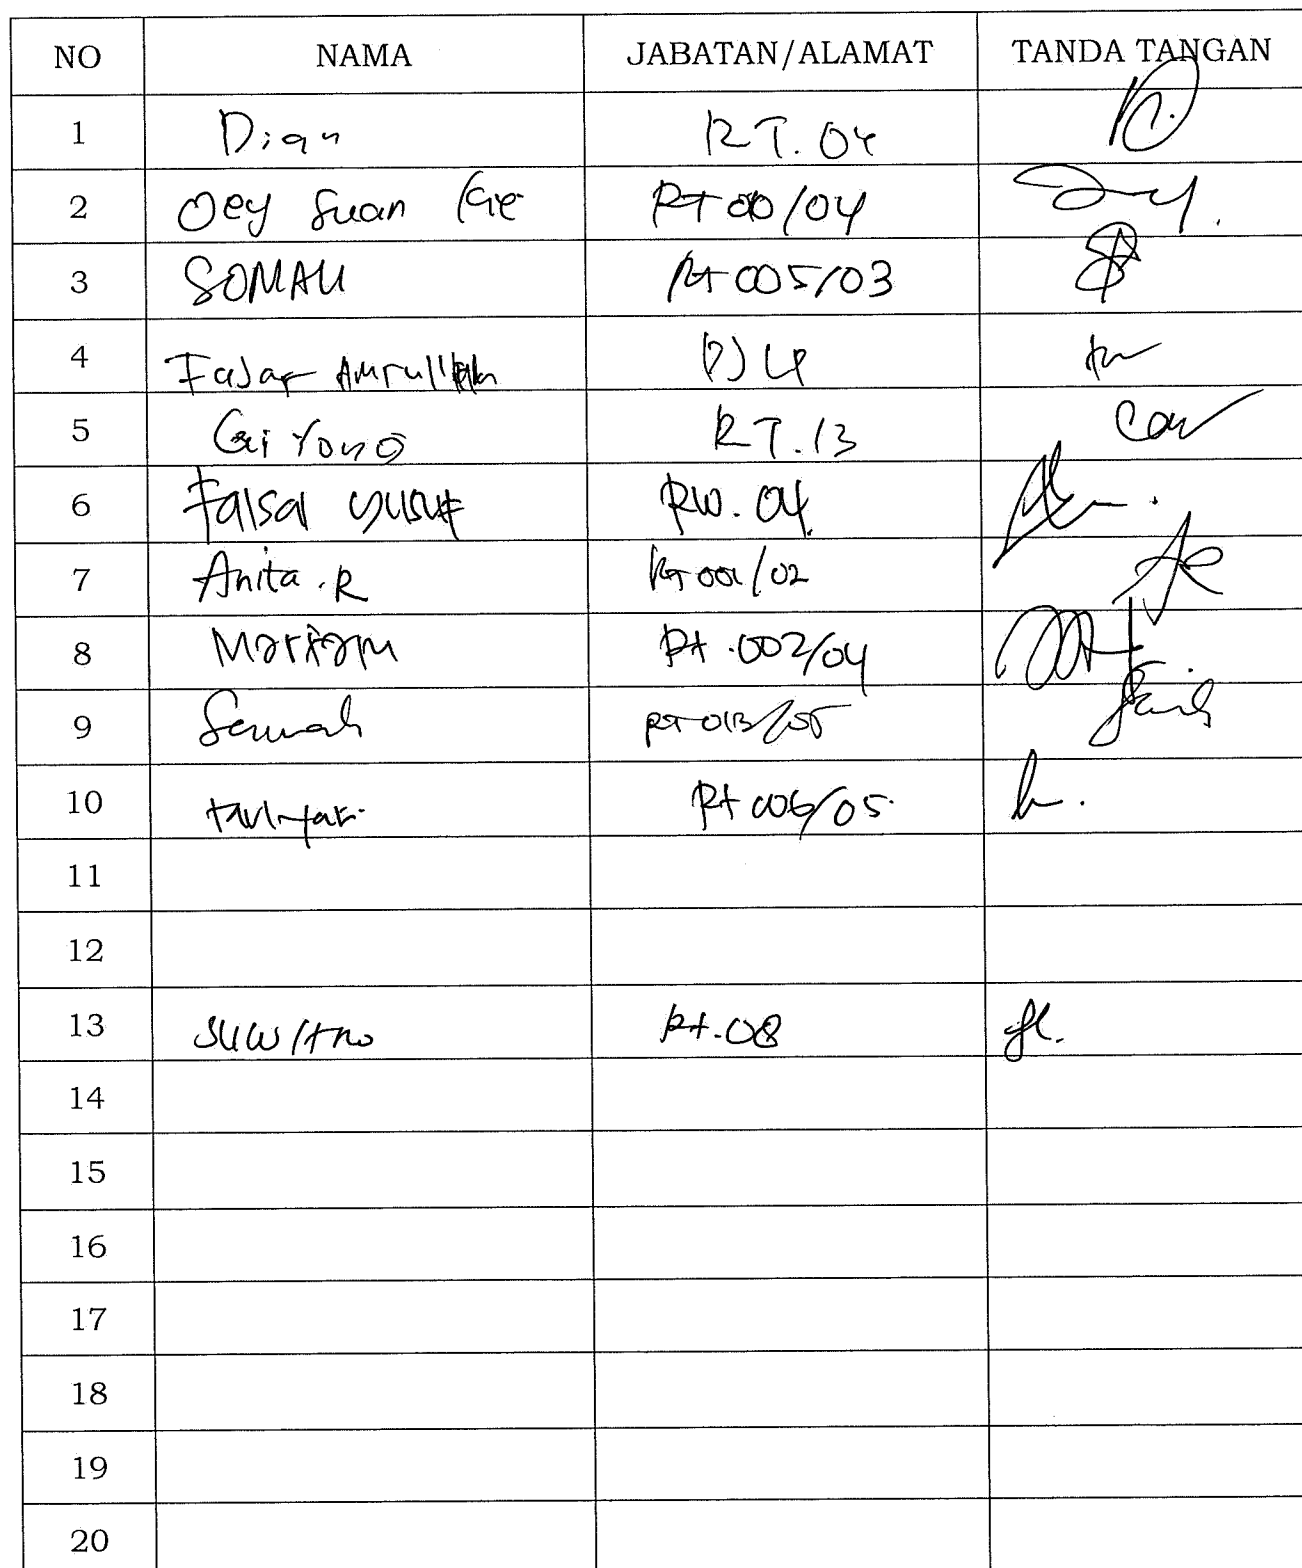 NO NAMA JABATAN/ALAMAT TANDA TANGAN
1 Dian RT. 04
2 Oey Suan Gie RT 00/04
3 SOMALI Rt 005/03
4 Fajar Amrullah
5 RT. 13
6 Faisal Yusuf RW. 04
7 Anita. R Rt 001/02
8 Mariam Rt. 002/04
9 RT 013/05
10 Rt 006/05
11
12
13 Suwitno Rt. 08
14
15
16
17
18
19
20